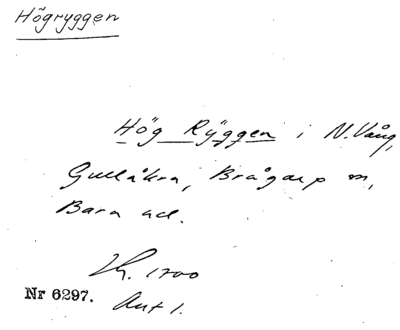 Högryggen
Hög Ryggen i N. Vång,
Gullåkra, Brågarp sn,
Bara hd.
Lh. 1700
Nr 6297. Akt 1.